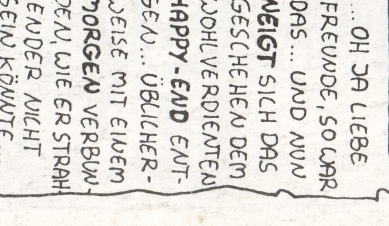 ...OH JA LIEBE
FREUNDE, SO WAR
DAS... UND NUN
NEIGT SICH DAS
GESCHEHEN DEM
WOHLVERDIENTEN
HAPPY-END ENT-
GEN... ÜBLICHER-
WEISE MIT EINEM
MORGEN VERBUN-
DEN, WIE ER STRAH-
ENDER NICHT
SEIN KÖNNTE